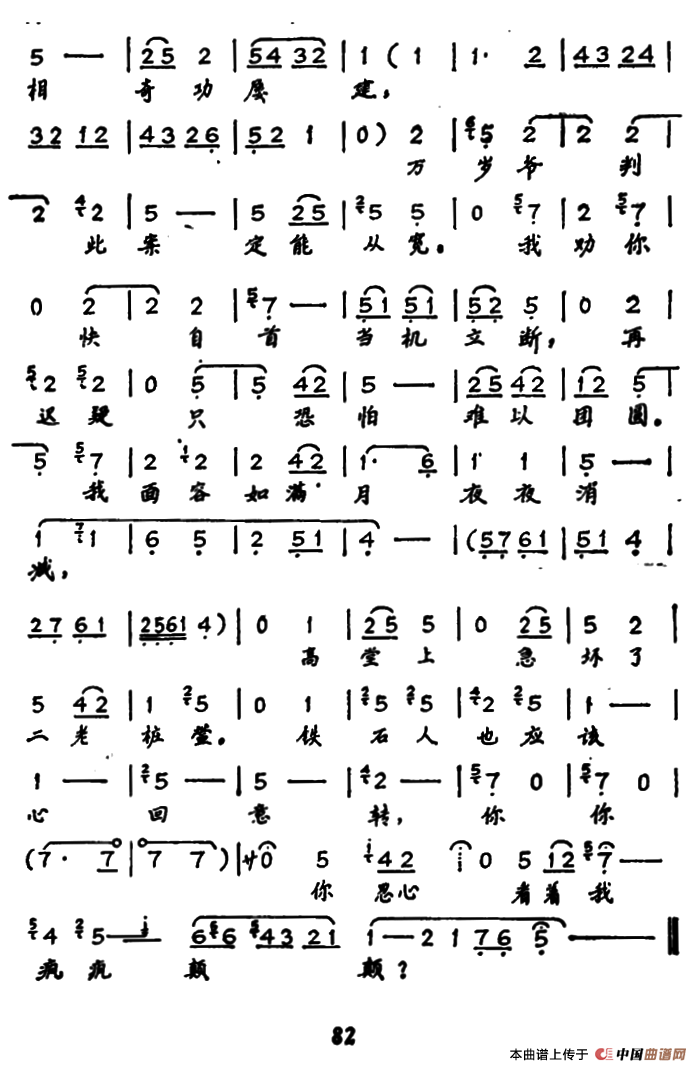 5 — | 25 2 | 54 32 | 1 ( 1 | 1· 2 | 43 24 |
相 奇 功 屡 建,
32 12 | 43 26 | 52 1 | 0 ) 2 | 5 2 | 2 2 |
万 岁 爷 判
2 2 | 5 — | 5 25 | 5 5 | 0 7 | 2 7 |
此 案 定 能 从 宽。 我 劝 你
0 2 | 2 2 | 7 — | 51 51 | 52 5 | 0 2 |
快 自 首 当 机 立 断, 再
2 2 | 0 5 | 5 42 | 5 — | 25 42 | 12 5 |
迟 疑 只 恐 怕 难 以 团 圆。
5 7 | 2 2 | 2 42 | 1· 6 | 1 1 | 5 — |
我 面 容 如 满 月 夜 夜 消
1 1 | 6 5 | 2 51 | 4 — | (57 61 | 51 4 |
减,
27 61 | 2561 4 ) | 0 1 | 25 5 | 0 25 | 5 2 |
高 堂 上 急 坏 了
5 42 | 1 5 | 0 1 | 5 5 | 2 5 | 1 — |
二 老 椿 萱。 铁 石 人 也 应 该
1 — | 5 — | 5 — | 2 — | 7 0 | 7 0 |
心 回 意 转, 你 你
( 7· 7 | 7 7 ) | 廿 0 5 42 i 0 5 12 7 —
你 忍 心 看 着 我
4 5 — 6 6 43 21 1 — 2 1 76 5 — ‖
疯 疯 颠 颠?
82
本曲谱上传于 中国曲谱网